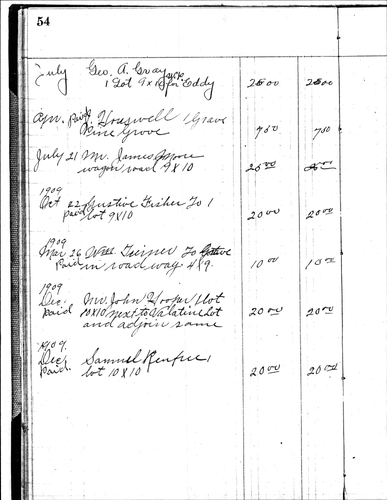 54
July Geo. A. Gray
1 Lot 9 x 10 for Eddy 25 00 25 00
Apr. paid Honeywell 1 Grave
Pine Grove 7 50 7 50
July 21 Mr. James Moore
wagon road 9 X 10 25 00
1909
Oct 22 Gustive Fisher To 1
paid lot 9 X 10 20 00 20 00
1909
Mar 26 Will To
Paid in road way 4 X 9. 10 00 10 00
1909
Dec. Mr. John Hooper 1 lot
paid 10 X 10 next to Valatine Lot 20 00 20 00
and adjoin same
1909.
Dec, Samuel Renfree 1
paid. lot 10 X 10 20 00 20 00